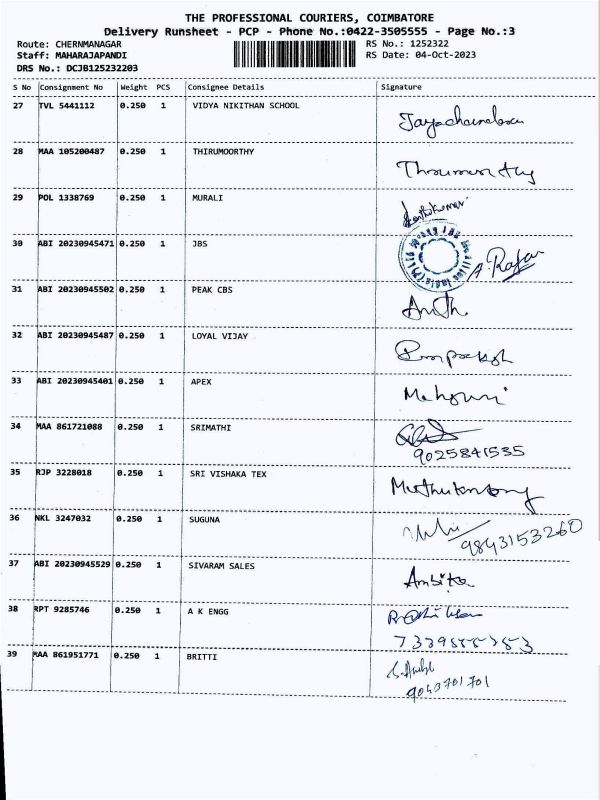 THE PROFESSIONAL COURIERS, COIMBATORE
Delivery Runsheet - PCP - Phone No.:0422-3505555 - Page No.:3
Route: CHERNMANAGAR RS No.: 1252322
Staff: MAHARAJAPANDI RS Date: 04-Oct-2023
DRS No.: DCJB125232203
S No Consignment No Weight PCS Consignee Details Signature
27 TVL 5441112 0.250 1 VIDYA NIKITHAN SCHOOL
28 MAA 105200487 0.250 1 THIRUMOORTHY
29 POL 1338769 0.250 1 MURALI
30 ABI 20230945471 0.250 1 JBS A. Rajan
31 ABI 20230945502 0.250 1 PEAK CBS
32 ABI 20230945487 0.250 1 LOYAL VIJAY
33 ABI 20230945401 0.250 1 APEX
34 MAA 861721088 0.250 1 SRIMATHI
9025841535
35 RJP 3228018 0.250 1 SRI VISHAKA TEX
36 NKL 3247032 0.250 1 SUGUNA
9843153260
37 ABI 20230945529 0.250 1 SIVARAM SALES Ambika
38 RPT 9285746 0.250 1 A K ENGG
39 MAA 861951771 0.250 1 BRITTI
9043701701